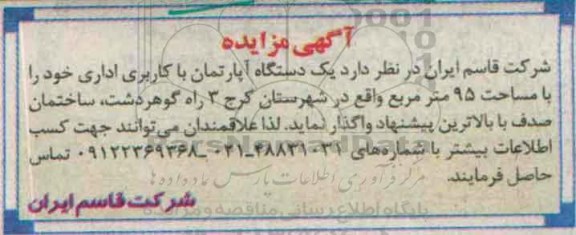 آگهی مزایده
شرکت قاسم ایران در نظر دارد یک دستگاه آپارتمان با کاربری اداری خود را
با مساحت ۹۵ متر مربع واقع در شهرستان کرج ۳ راه گوهردشت، ساختمان
صدف با بالاترین پیشنهاد واگذار نماید. لذا علاقمندان می‌توانند جهت کسب
اطلاعات بیشتر با شماره‌های ۴۸۸۳۱۰۳۱-۰۲۱ـ ۰۹۱۲۲۳۶۹۳۶۸ تماس
حاصل فرمایند.
شرکت قاسم ایران
مرکز فرآوری اطلاعات پارس نماد داده ها
پایگاه اطلاع رسانی مناقصه و مزایده